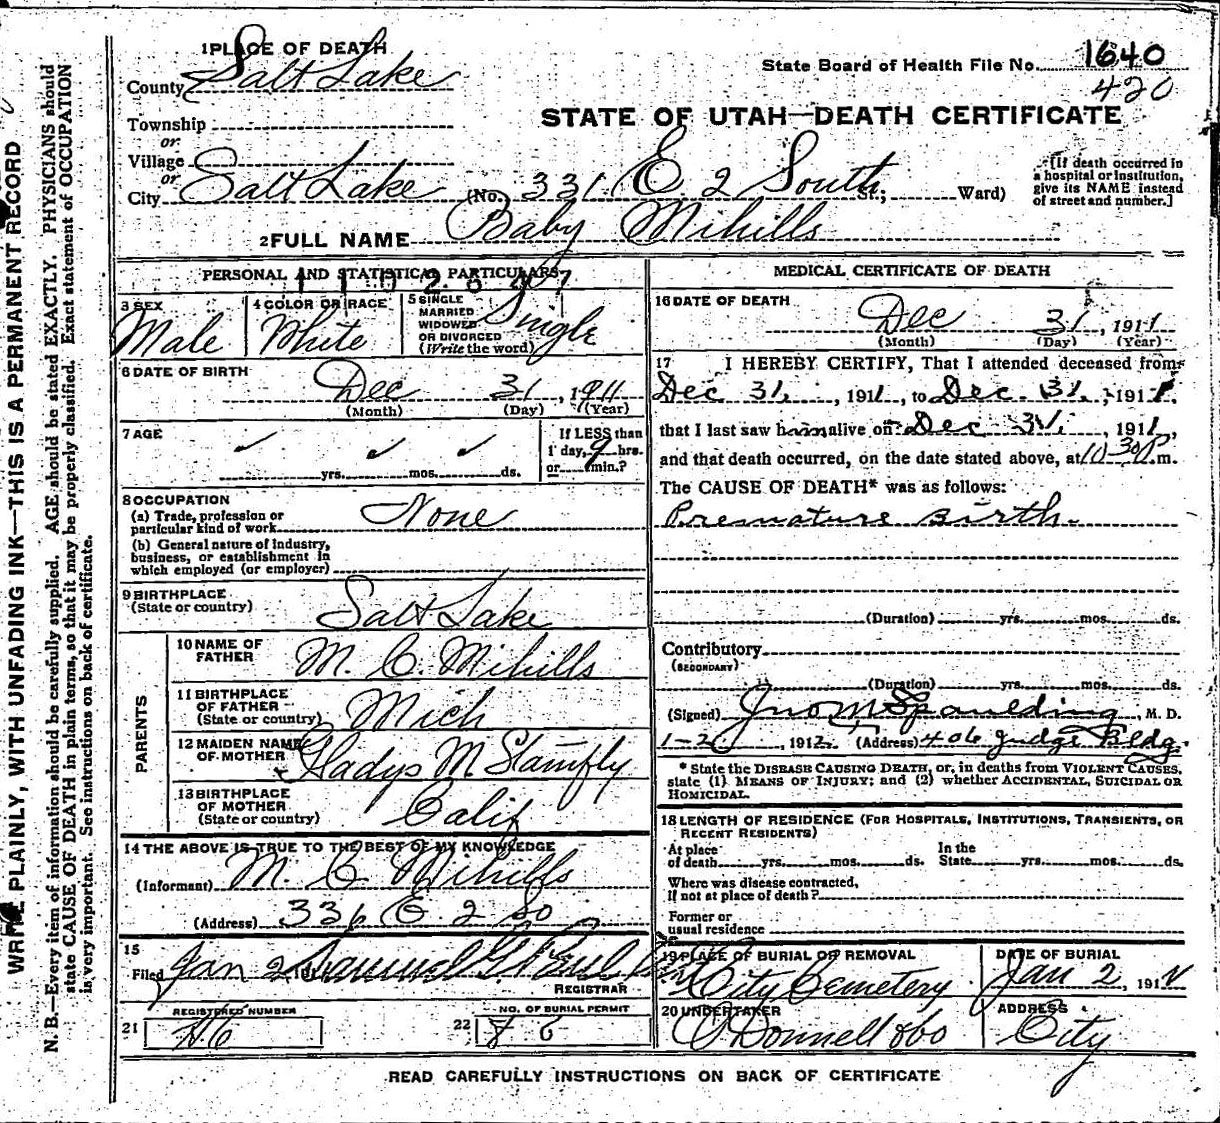 1 PLACE OF DEATH
County Salt Lake
State Board of Health File No. 1640
420
Township
or
Village
or
City Salt Lake (No. 331 E. 2 South St.; Ward)
STATE OF UTAH—DEATH CERTIFICATE
[If death occurred in
a hospital or institution,
give its NAME instead
of street and number.]
2 FULL NAME Baby Mihills
PERSONAL AND STATISTICAL PARTICULARS
3 SEX
Male
4 COLOR OR RACE
White
5 SINGLE
MARRIED
WIDOWED
OR DIVORCED
(Write the word)
Single
6 DATE OF BIRTH
Dec 31, 1911
(Month) (Day) (Year)
7 AGE
yrs. mos. ds.
If LESS than
1 day, 9 hrs.
or min.?
8 OCCUPATION
(a) Trade, profession or
particular kind of work None
(b) General nature of industry,
business, or establishment in
which employed (or employer)
9 BIRTHPLACE
(State or country)
Salt Lake
PARENTS
10 NAME OF
FATHER
M. C. Mihills
11 BIRTHPLACE
OF FATHER
(State or country)
Mich
12 MAIDEN NAME
OF MOTHER
Gladys M Stamfly
13 BIRTHPLACE
OF MOTHER
(State or country)
Calif
14 THE ABOVE IS TRUE TO THE BEST OF MY KNOWLEDGE
(Informant) M. C. Mihills
(Address) 331 E 2 So
15
Filed Jan 2 191 Samuel G. Paul
REGISTRAR
REGISTERED NUMBER
21
NO. OF BURIAL PERMIT
22
MEDICAL CERTIFICATE OF DEATH
16 DATE OF DEATH
Dec 31, 1911
(Month) (Day) (Year)
17 I HEREBY CERTIFY, That I attended deceased from
Dec 31, 1911, to Dec. 31, 1911,
that I last saw him alive on Dec 31, 1911,
and that death occurred, on the date stated above, at 10 30 P m.
The CAUSE OF DEATH* was as follows:
Premature Birth
(Duration) yrs. mos. ds.
Contributory
(SECONDARY)
(Duration) yrs. mos. ds.
(Signed) Jno M Spaulding, M. D.
1-2, 1912 (Address) 406 Judge Bldg.
* State the DISEASE CAUSING DEATH, or, in deaths from VIOLENT CAUSES,
state (1) MEANS OF INJURY; and (2) whether ACCIDENTAL, SUICIDAL OR
HOMICIDAL.
18 LENGTH OF RESIDENCE (FOR HOSPITALS, INSTITUTIONS, TRANSIENTS, OR
RECENT RESIDENTS)
At place
of death yrs. mos. ds.
In the
State yrs. mos. ds.
Where was disease contracted,
If not at place of death?
Former or
usual residence
19 PLACE OF BURIAL OR REMOVAL
City Cemetery
DATE OF BURIAL
Jan 2, 191
20 UNDERTAKER
O'Donnell &Co
ADDRESS
City
READ CAREFULLY INSTRUCTIONS ON BACK OF CERTIFICATE
WRITE PLAINLY, WITH UNFADING INK—THIS IS A PERMANENT RECORD
N. B.—Every item of information should be carefully supplied. AGE should be stated EXACTLY. PHYSICIANS should
state CAUSE OF DEATH in plain terms, so that it may be properly classified. Exact statement of OCCUPATION
is very important. See instructions on back of certificate.